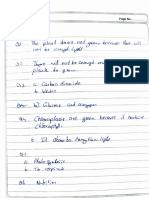 Page No.
Q1 The plant does not grow because there will
not be enough light.
Q2 There will not be enough
plants to grow
Q3 a. Carbon dioxide
b. Water
Q4 b) Glucose and oxygen
Chloroplasts are green because it contains
chlorophyll.
It absorbs energy from light
a Photosynthesis
b To respire
Q6 Nutrition